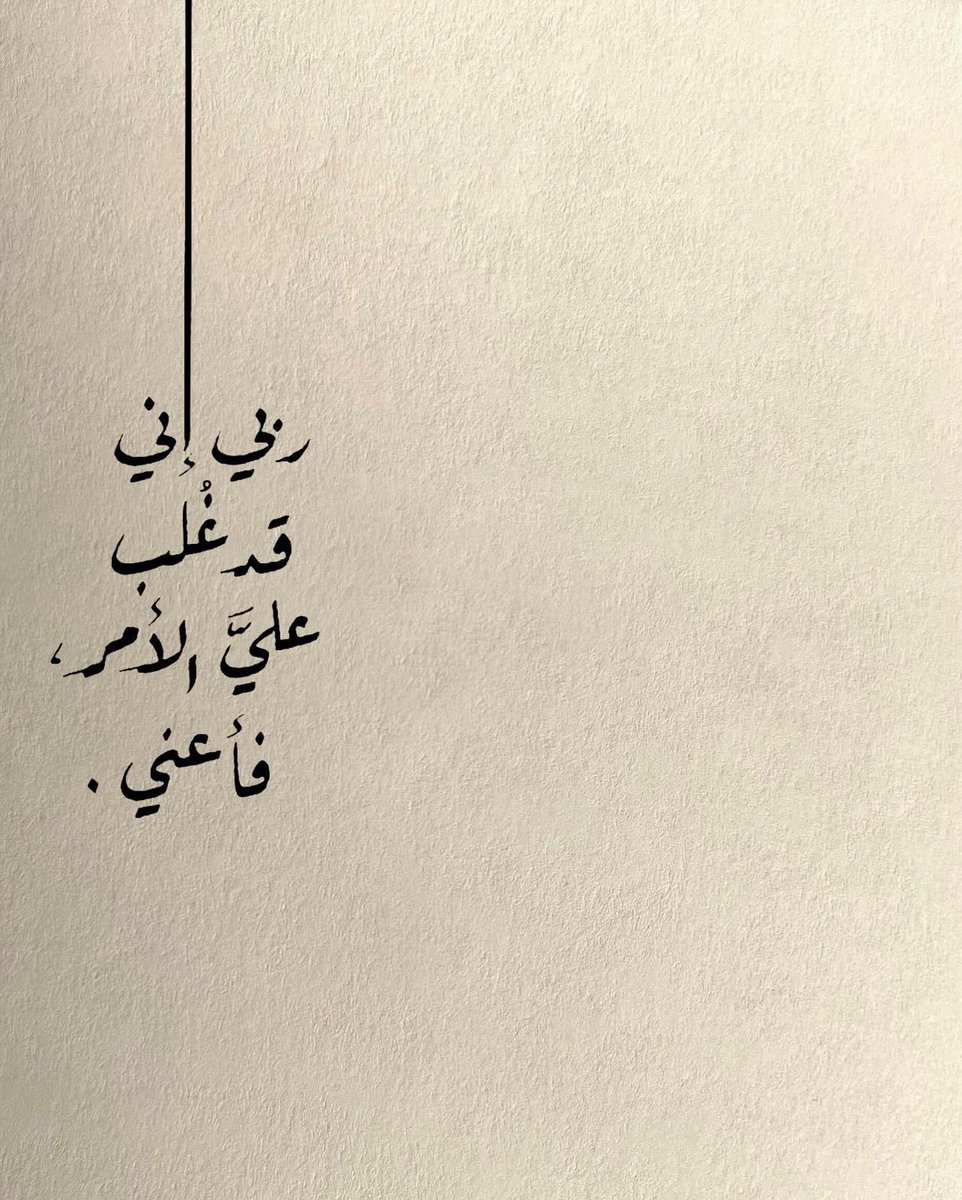 ربي إني
قد غُلب
عليَّ الأمر،
فأعني .